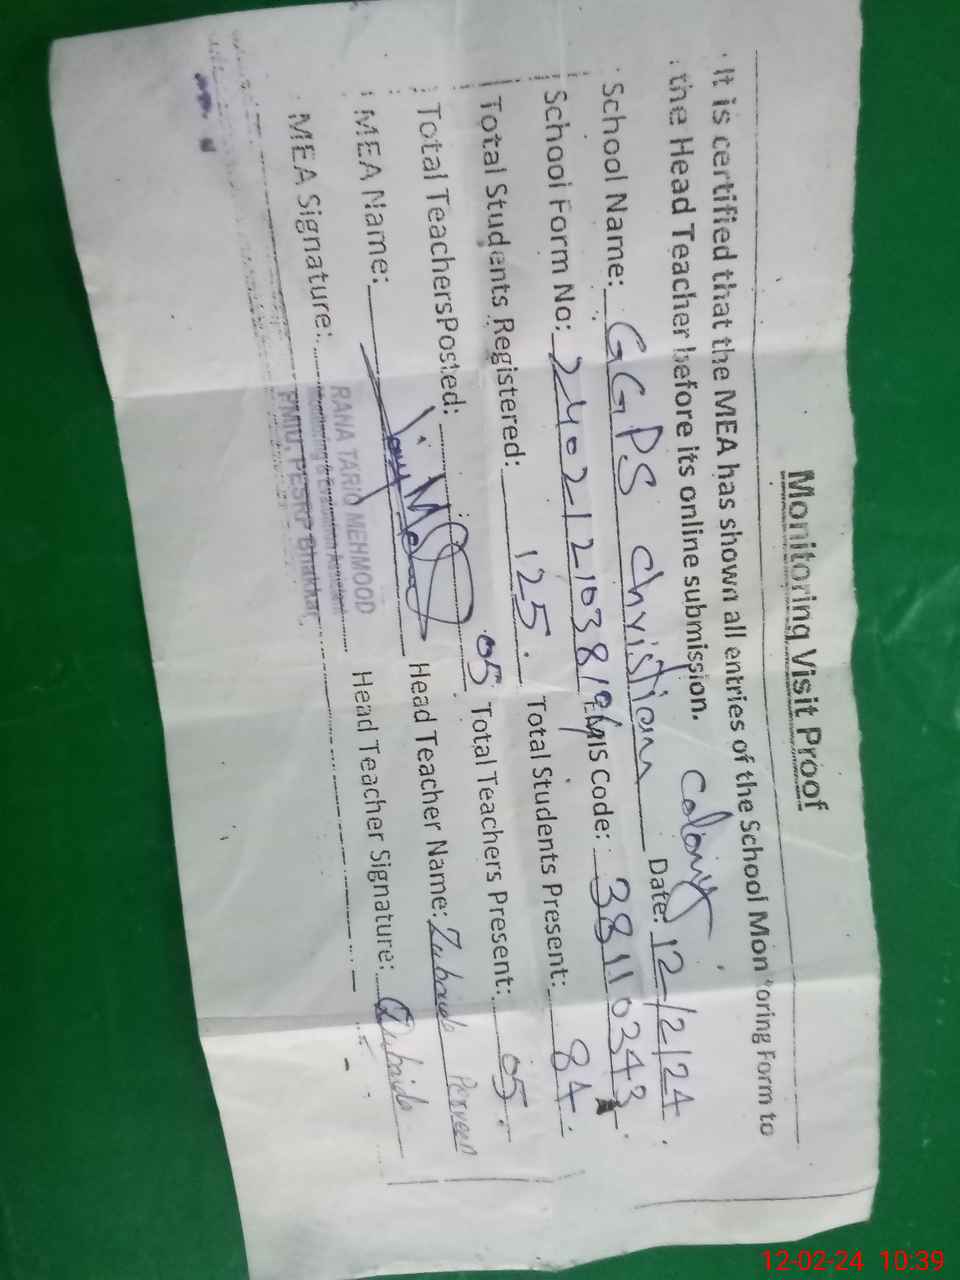 Monitoring Visit Proof
It is certified that the MEA has shown all entries of the School Mon oring Form to
the Head Teacher before its online submission.
School Name: GGPS christian Colony Date: 12/2/24
School Form No: EMIS Code: 38110343
Total Students Registered: 125. Total Students Present: 84.
Total TeachersPosted: 05 Total Teachers Present: 05.
MEA Name: Head Teacher Name: Zubaida Perveen
MEA Signature: Head Teacher Signature: Zubaida
RANA TARIQ MEHMOOD
Monitoring & Evaluation Assistant
PMIU, PESRP Bhakkar.
12-02-24 10:39